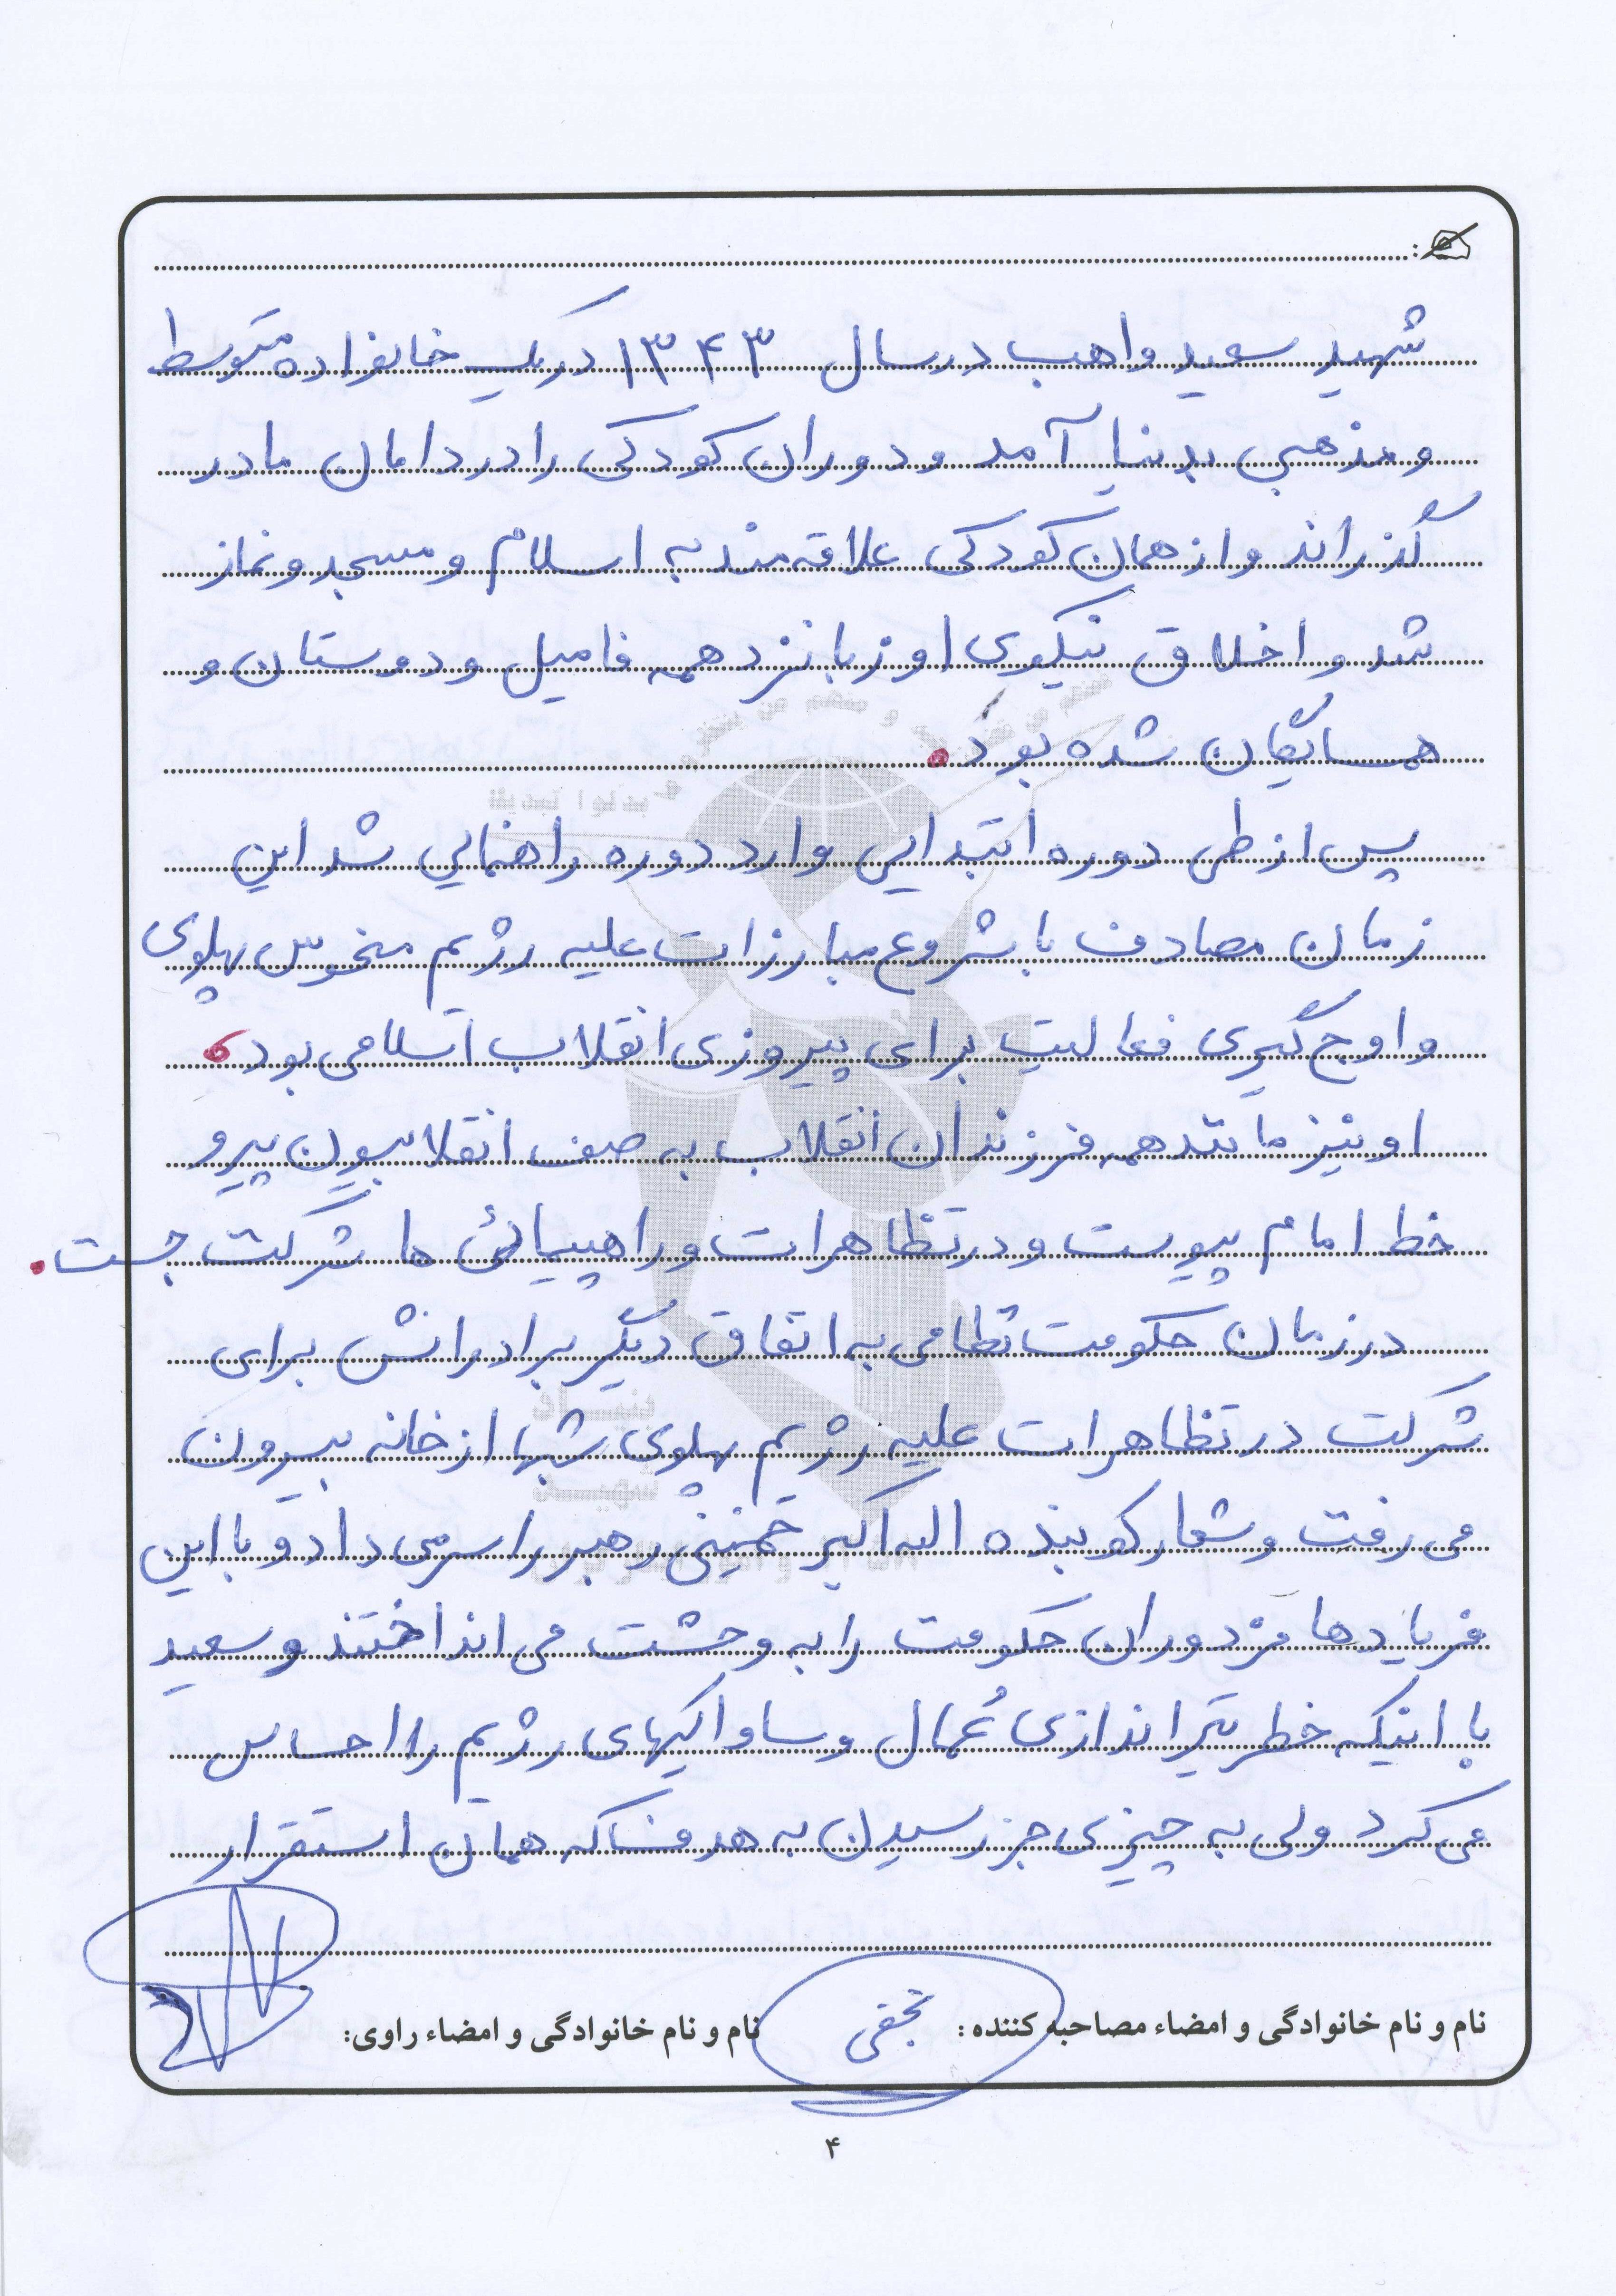 شهید سعید واهب در سال ۱۳۴۳ در یک خانواده متوسط
و مذهبی بدنیا آمد و دوران کودکی را در دامان مادر
گذراند و از همان کودکی علاقه مند به اسلام و مسجد و نماز
شد و اخلاق نیکوی او زبانزد همه فامیل و دوستان و
همسایگان شده بود.
پس از طی دوره ابتدایی وارد دوره راهنمایی شد این
زمان مصادف با شروع مبارزات علیه رژیم منحوس پهلوی
و اوج گیری فعالیت برای پیروزی انقلاب اسلامی بود.
او نیز مانند همه فرزندان انقلاب به صف انقلابیون پیرو
خط امام پیوست و در تظاهرات و راهپیمائی ها شرکت جست.
در زمان حکومت نظامی به اتفاق دیگر برادرانش برای
شرکت در تظاهرات علیه رژیم پهلوی شبها از خانه بیرون
می رفت و شعار کوبنده اله اکبر خمینی رهبر را سر می داد و با این
فریادها مزدوران حکومت را به وحشت می انداختند و سعید
با اینکه خطر تیراندازی عُمال و ساواکیهای رژیم را احساس
می کرد ولی به چیزی جز رسیدن به هدف که همان استقرار
نام و نام خانوادگی و امضاء مصاحبه کننده: نجفی نام و نام خانوادگی و امضاء راوی:
۴
بنیاد
شهید